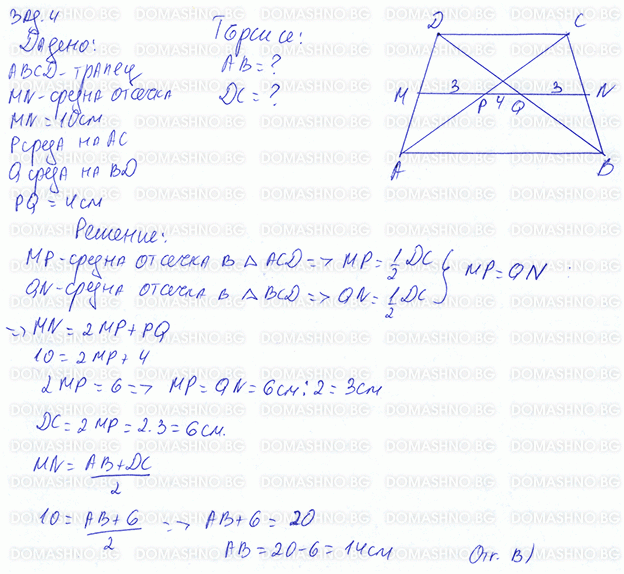 Зад. 4
Дадено:
ABCD - трапец
MN - средна отсечка
MN = 10см
P среда на AC
Q среда на BD
PQ = 4см
Търси се:
AB = ?
DC = ?
D C
M 3 P 4 Q 3 N
A B
Решение:
MP - средна отсечка в △ ACD => MP = 1/2 DC } MP = QN
QN - средна отсечка в △ BCD => QN = 1/2 DC
=> MN = 2MP + PQ
10 = 2MP + 4
2MP = 6 => MP = QN = 6см : 2 = 3см
DC = 2MP = 2.3 = 6см.
MN = AB+DC / 2
10 = AB+6 / 2 => AB+6 = 20
AB = 20-6 = 14см
Отг. В)
DOMASHNO.BG